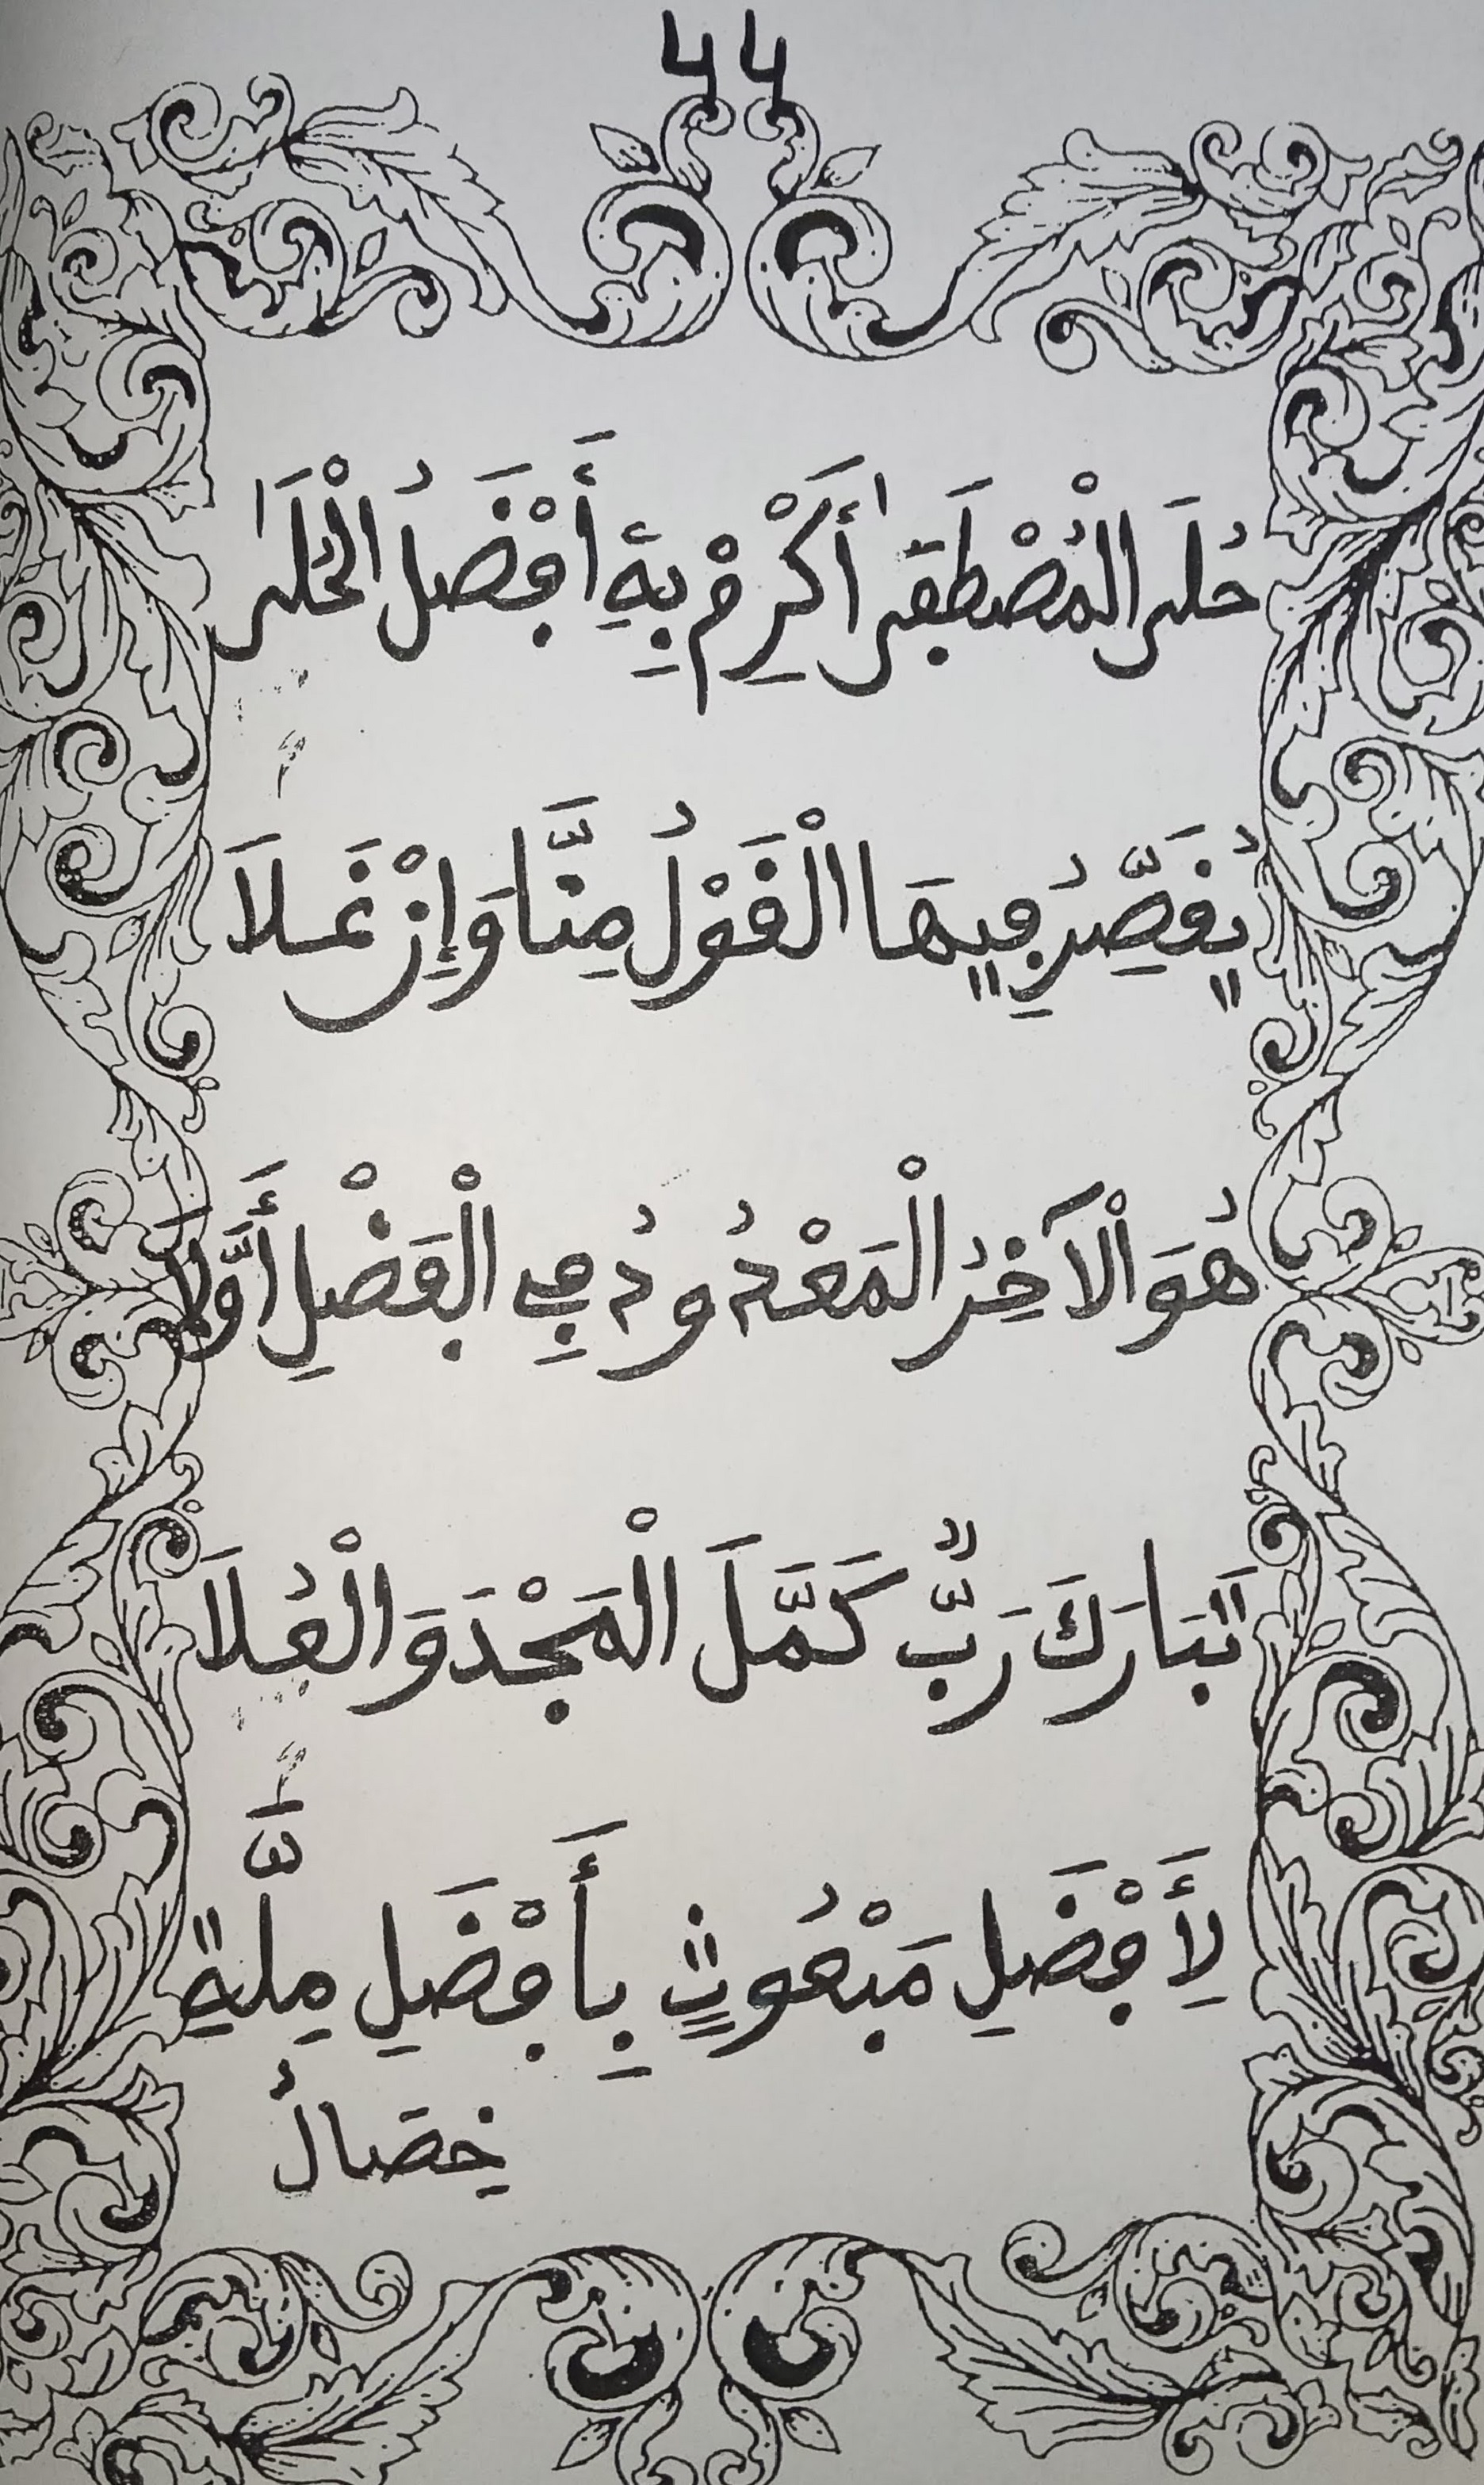 44
حُلَى الْمُصْطَفَى أَكْرِمْ بِهِ أَفْضَلُ الْحُلَى
يُقَصِّرُ فِيهَا الْقَوْلُ مِنَّا وَإِنْ غَلَا
هُوَ الْآخِرُ الْمَعْدُودُ فِي الْفَضْلِ أَوَّلَا
تَبَارَكَ رَبٌّ كَمَّلَ الْمَجْدَ وَالْعُلَا
لِأَفْضَلِ مَبْعُوثٍ بِأَفْضَلِ مِلَّةٍ
خِصَالُ